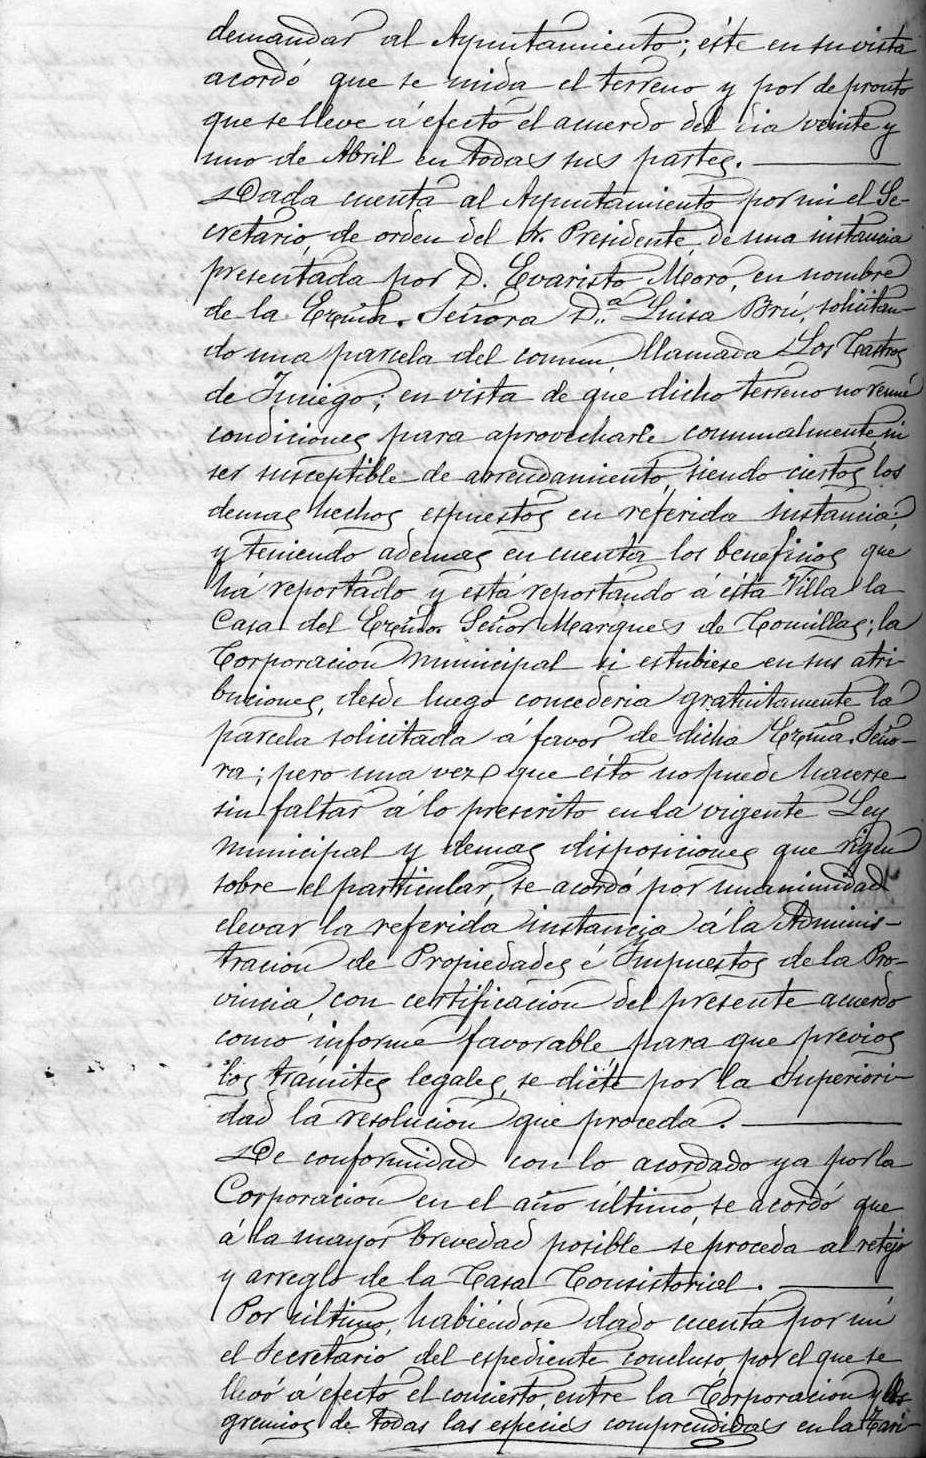 demandar al Ayuntamiento; éste en su vista
acordó que se mida el terreno y por de pronto
que se lleve á efecto el acuerdo del dia veinte y
uno de Abril en todas sus partes.
Dada cuenta al Ayuntamiento por mi el Se-
cretario, de orden del Sr. Presidente, de una instancia
presentada por D. Evaristo Moro, en nombre
de la Excma. Señora D.ª Luisa Brú, solicitan-
do una parcela del comun, llamada Los Castros
de Iruiego; en vista de que dicho terreno no reune
condiciones para aprovecharle comunalmente, ni
ser susceptible de arrendamiento, siendo ciertos los
demas hechos espuestos en referida instancia,
y teniendo ademas en cuenta los beneficios que
há reportado y está reportando á ésta Villa la
Casa del Excmo. Señor Marques de Comillas; la
Corporacion municipal si estubiese en sus atri-
buciones, desde luego concederia gratuitamente la
parcela solicitada á favor de dicha Excma. Seño-
ra; pero una vez que ésto no puede hacerse
sin faltar á lo prescrito en la vigente Ley
municipal y demas disposiciones que rigen
sobre el particular, se acordó por unanimidad
elevar la referida instancia á la Adminis-
tracion de Propiedades é Impuestos de la Pro-
vincia, con certificacion del presente acuerdo
como informe favorable, para que previos
los trámites legales, se dicte por la Superiori-
dad la resolucion que proceda.
De conformidad con lo acordado ya por la
Corporacion en el año último, se acordó que
á la mayor brevedad posible se proceda al retejo
y arreglo de la Casa Consistorial.
Por último, habiéndose dado cuenta por mi
el Secretario del espediente concluso, por el que se
llevó á efecto el concierto entre la Corporacion y los
gremios de todas las especies comprendidas en la Tari-